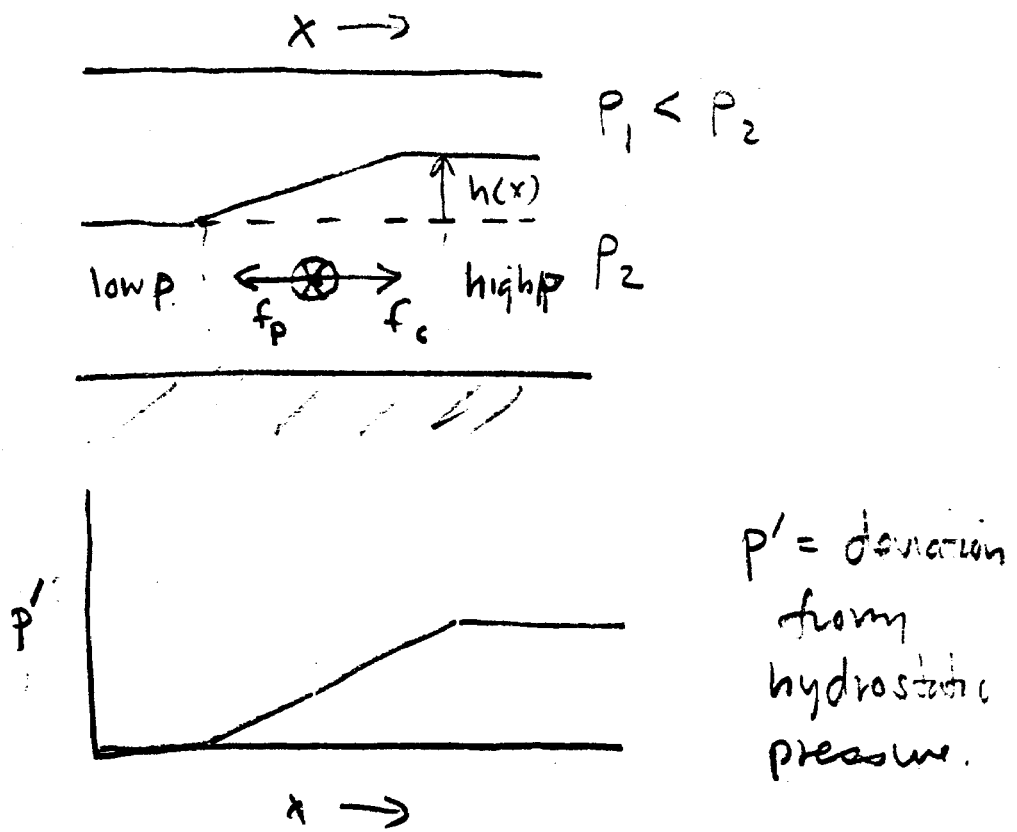 x →
ρ₁ < ρ₂
h(x)
ρ₂
low p
high p
fₚ
f꜀
p′
p′ = deviation
from
hydrostatic
pressure.
x →